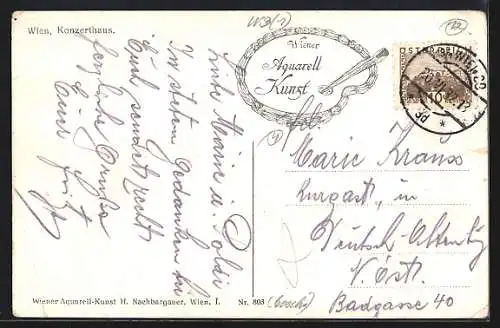 Wien, Konzerthaus.
W3(1)
(22)
Wiener
Aquarell
Kunst
ÖSTERREICH
10
Liebe Marie u. Poldi
In steten Gedanken bei
Euch sendet recht
herzliche Grüße
Euer Fritz
Marie Krauss
Kurgast, in
Deutsch-Altenburg
N. Öst.
Badgasse 40
Wiener Aquarell-Kunst H. Nachbargauer, Wien, I. Nr. 803